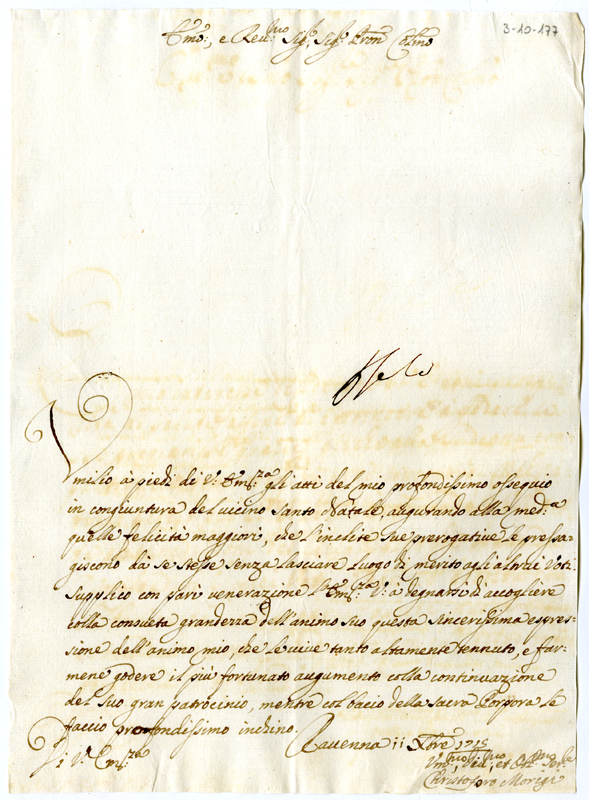 3-10-177
Emo:, e Reu:mo Sig:, Sig: Pron Colmo
Umilio à piedi di V: Em:za gli atti del mio profondissimo ossequio
in congiuntura del uicino Santo Natale, augurando alla med:a
quelle felicità maggiori, che l'inclite sue prerogative le pressa-
giscono dà se stesse senza lasciare luogo di merito agli altrui Voti.
Supplico con pari venerazione l'Em:za V: à degnarsi di accogliere
colla consueta grandezza dell'animo suo questa sincerissima espres-
sione dell'animo mio, che le uiue tanto altamente tennuto, e far-
mene godere il più fortunato augumento colla continuazione
del Suo gran patrocinio, mentre col bacio della sacra Porpora le
faccio profondissimo inchino. Rauenna 11 Xbre 1715
Di V: Em:za
Vmo:, Diu:mo, et Obl:mo Ser:e
Christoforo Morigi